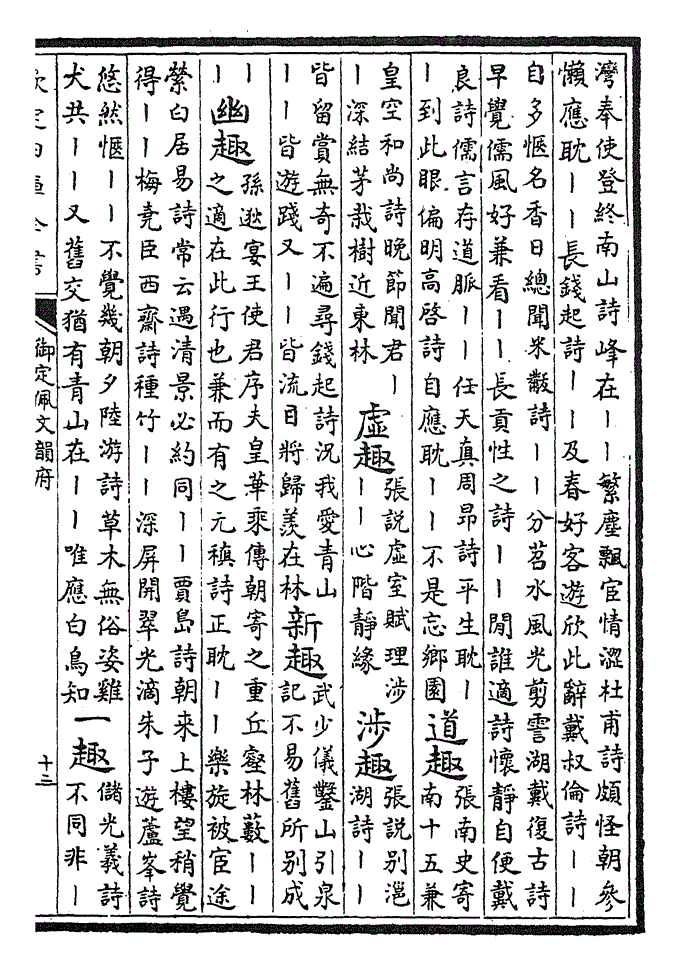 灣奉使登終南山詩峰在丨丨繁塵飄宦情澀杜甫詩頗怪朝參
懶應耽丨丨長錢起詩丨丨及春好客遊欣此辭戴叔倫詩丨丨
自多愜名香日總聞米黻詩丨丨分苕水風光剪霅湖戴復古詩
早覺儒風好兼看丨丨長貢性之詩丨丨閒誰適詩懷靜自便戴
良詩儒言存道脈丨丨任天真周昂詩平生耽丨
丨到此眼偏明高啓詩自應耽丨丨不是忘鄉園
道趣
張南史寄
南十五兼
皇空和尚詩晚節聞君丨
丨深結茅栽樹近東林
虛趣
張說虛室賦理涉
丨丨心階靜緣
涉趣
張說別灉
湖詩丨丨
皆留賞無奇不遍尋錢起詩況我愛青山
丨丨皆遊踐又丨丨皆流目將歸羨在林
新趣
武少儀鑿山引泉
記不易舊所別成
丨
丨
幽趣
孫逖宴王使君序夫皇華乘傳朝寄之重丘壑林藪丨丨
之適在此行也兼而有之元稹詩正耽丨丨樂旋被宦途
縈白居易詩常云遇清景必約同丨丨賈島詩朝来上樓望稍覺
得丨丨梅堯臣西齋詩種竹丨丨深屏開翠光滴朱子遊蘆峯詩
悠然愜丨丨不覺幾朝夕陸游詩草木無俗姿雞
犬共丨丨又舊交猶有青山在丨丨唯應白鳥知
一趣
儲光羲詩
不同非丨
欽定四庫全書
御定佩文韻府
十三